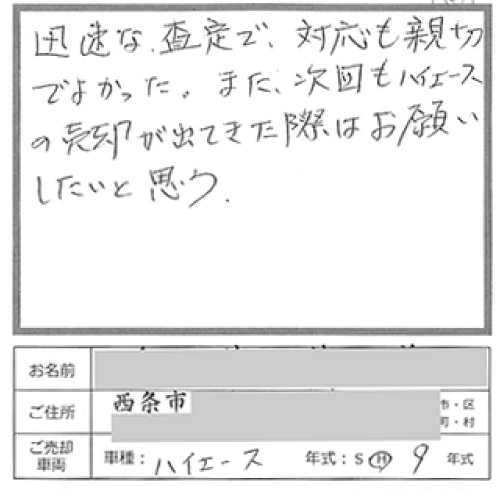 迅速な、査定で、対応も親切
でよかった。また、次回もハイエース
の売却が出てきた際はお願い
したいと思う.
お名前
ご住所 西条市 市・区
町・村
ご売却
車両 車種： ハイエース 年式： S Ⓗ 9 年式